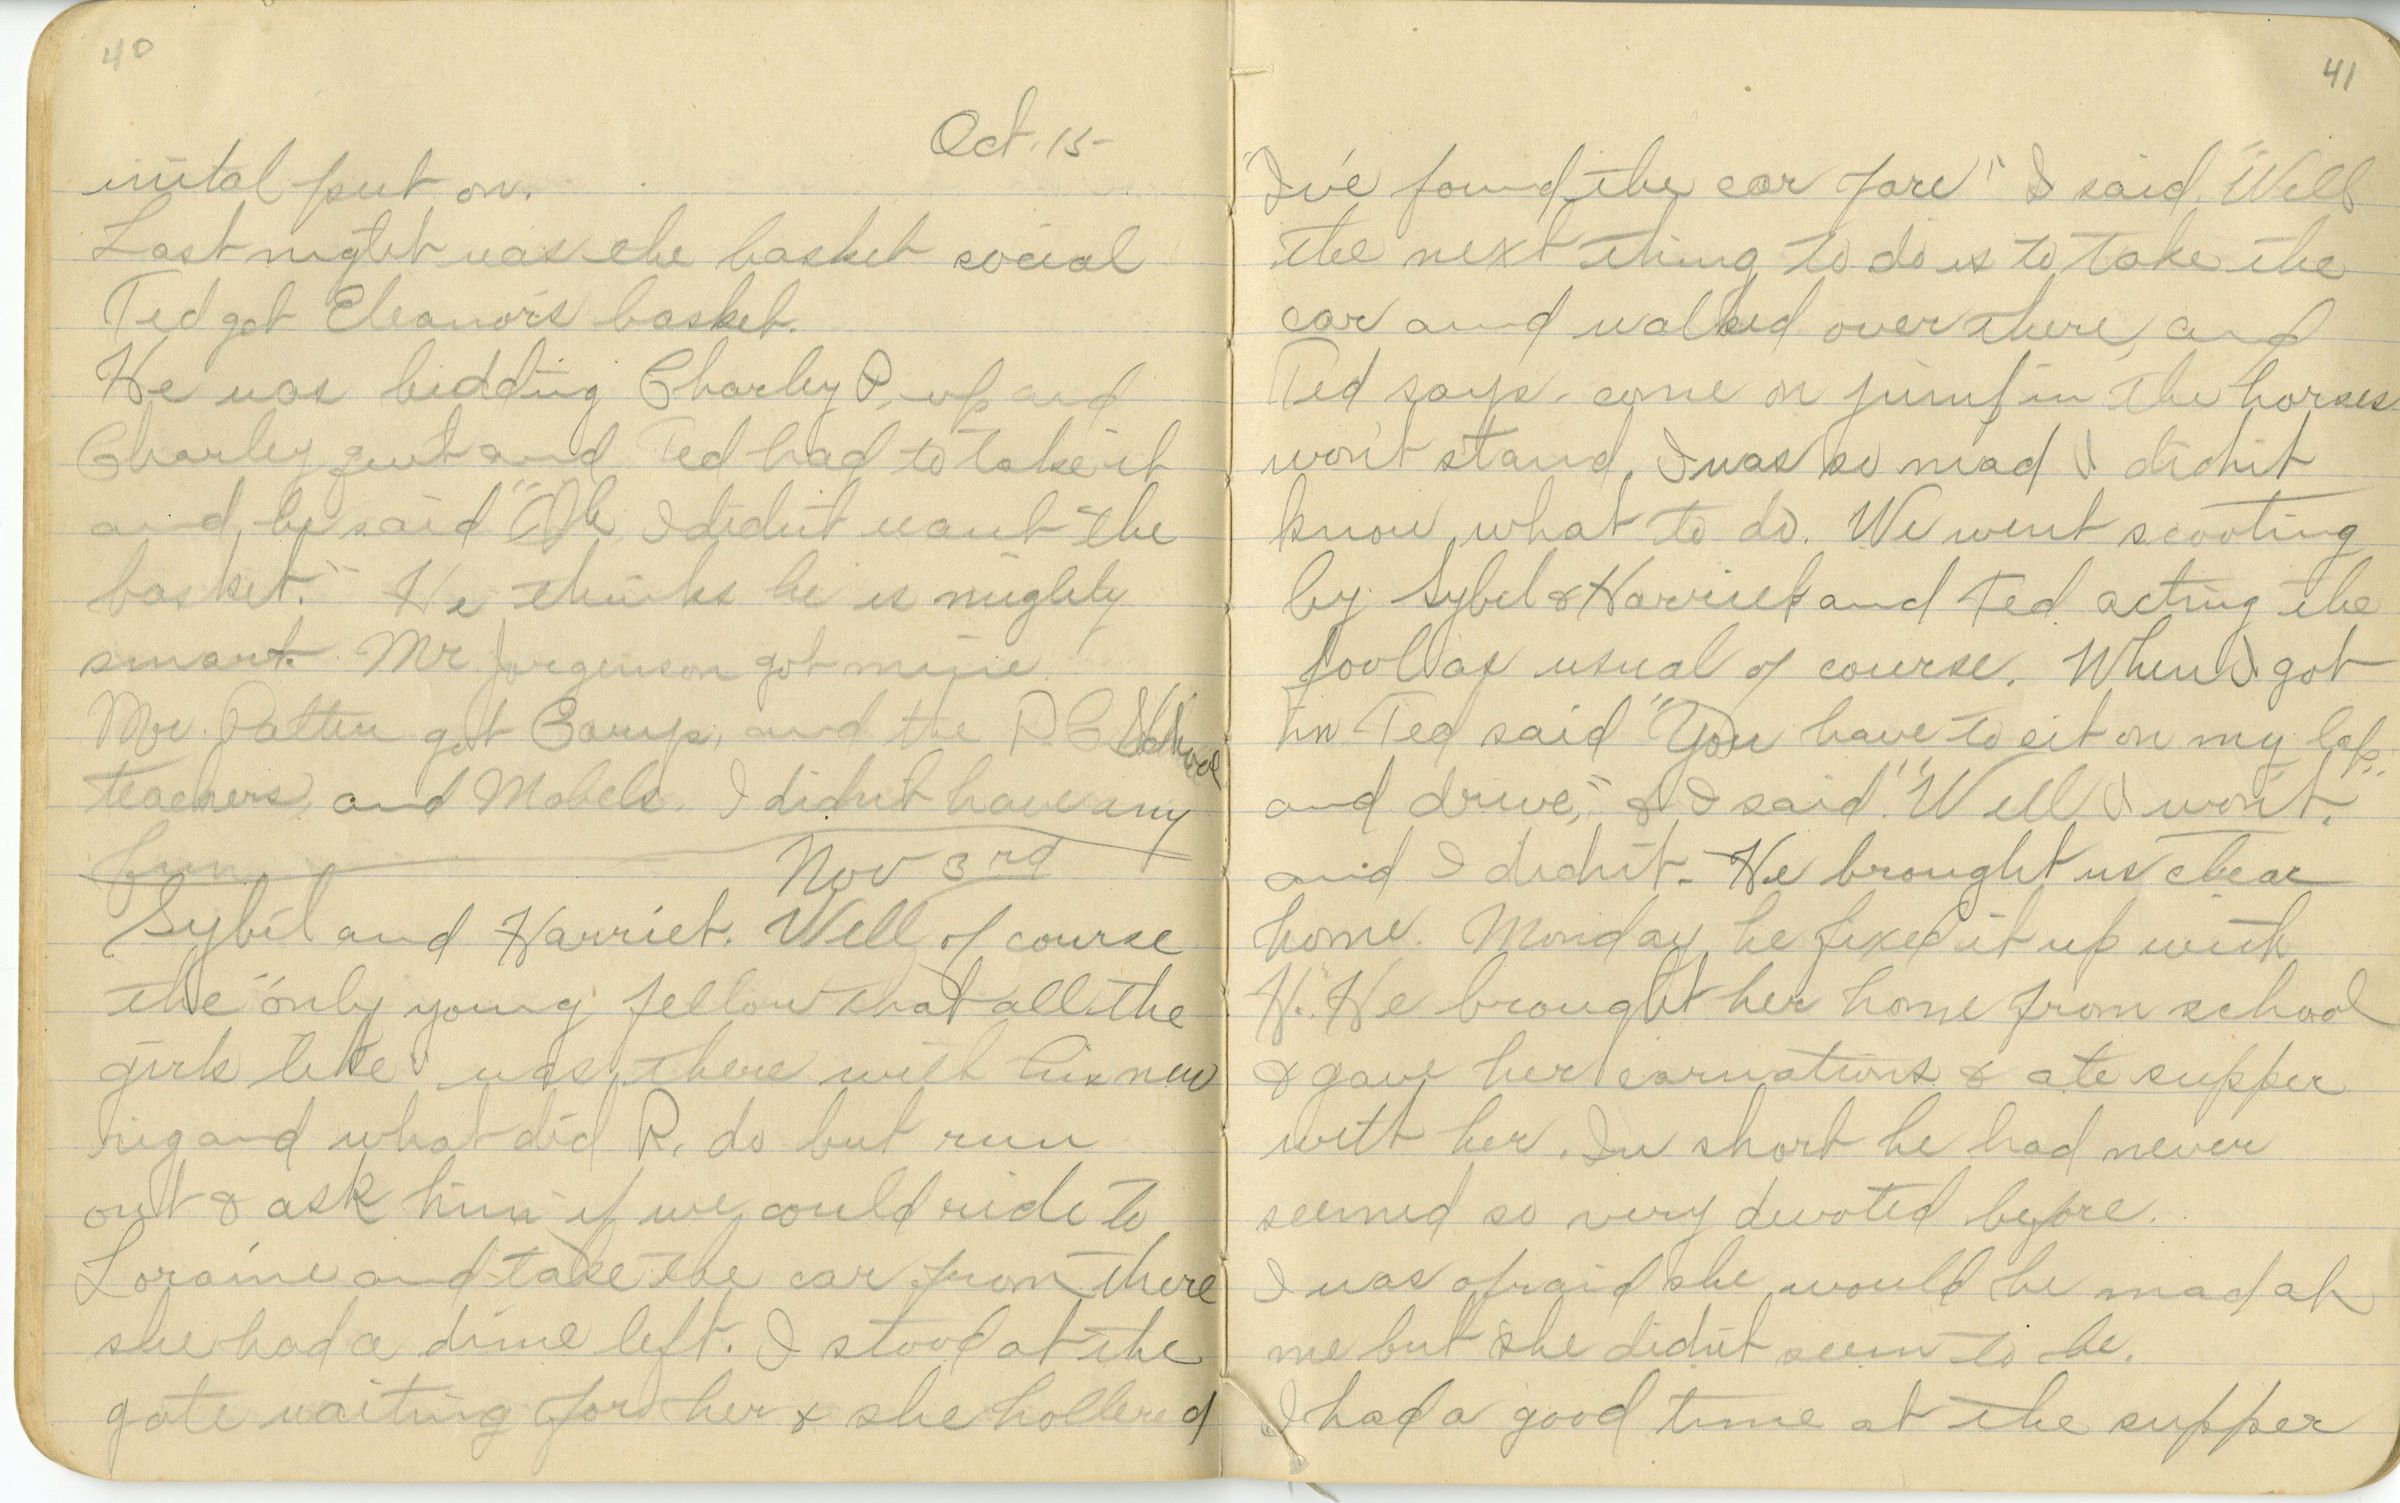 40
Oct. 15-
inital put on.
Last night was the basket social
Ted got Eleanor's basket.
He was bidding Charley P. up and
Charley quit and Ted had to take it
and he said "Oh, I didn't want the
basket." He thinks he is mighty
smart. Mr Jorgenson got mine
Mr. Patten got Camp, and the P.C. School
teachers, and Mabels. I didn't have any
fun.
Nov 3rd
Sybil and Harriet. Well of course
the "only young fellow that all the
girls like" was there with his new
rig and what did R. do but run
out & ask him if we could ride to
Loraine and take the car from there
she had a dime left. I stood at the
gate waiting for her & she hollered
41
"I've found the car fare" I said, "Well
the next thing to do is to take the
car and walked over there, and
Ted says - come on jump in the horses
won't stand, I was so mad I didn't
know what to do. We went scooting
by Sybil & Harriet and Ted acting the
fool as usual of course. When I got
in Ted said "You have to sit on my lap
and drive," & I said "Well I won't."
and I didn't. He brought us clear
home. Monday he fixed it up with
H. He brought her home from school
& gave her carnations & ate supper
with her. In short he had never
seemed so very devoted before.
I was afraid she would be mad at
me but she didn't seem to be.
I had a good time at the supper